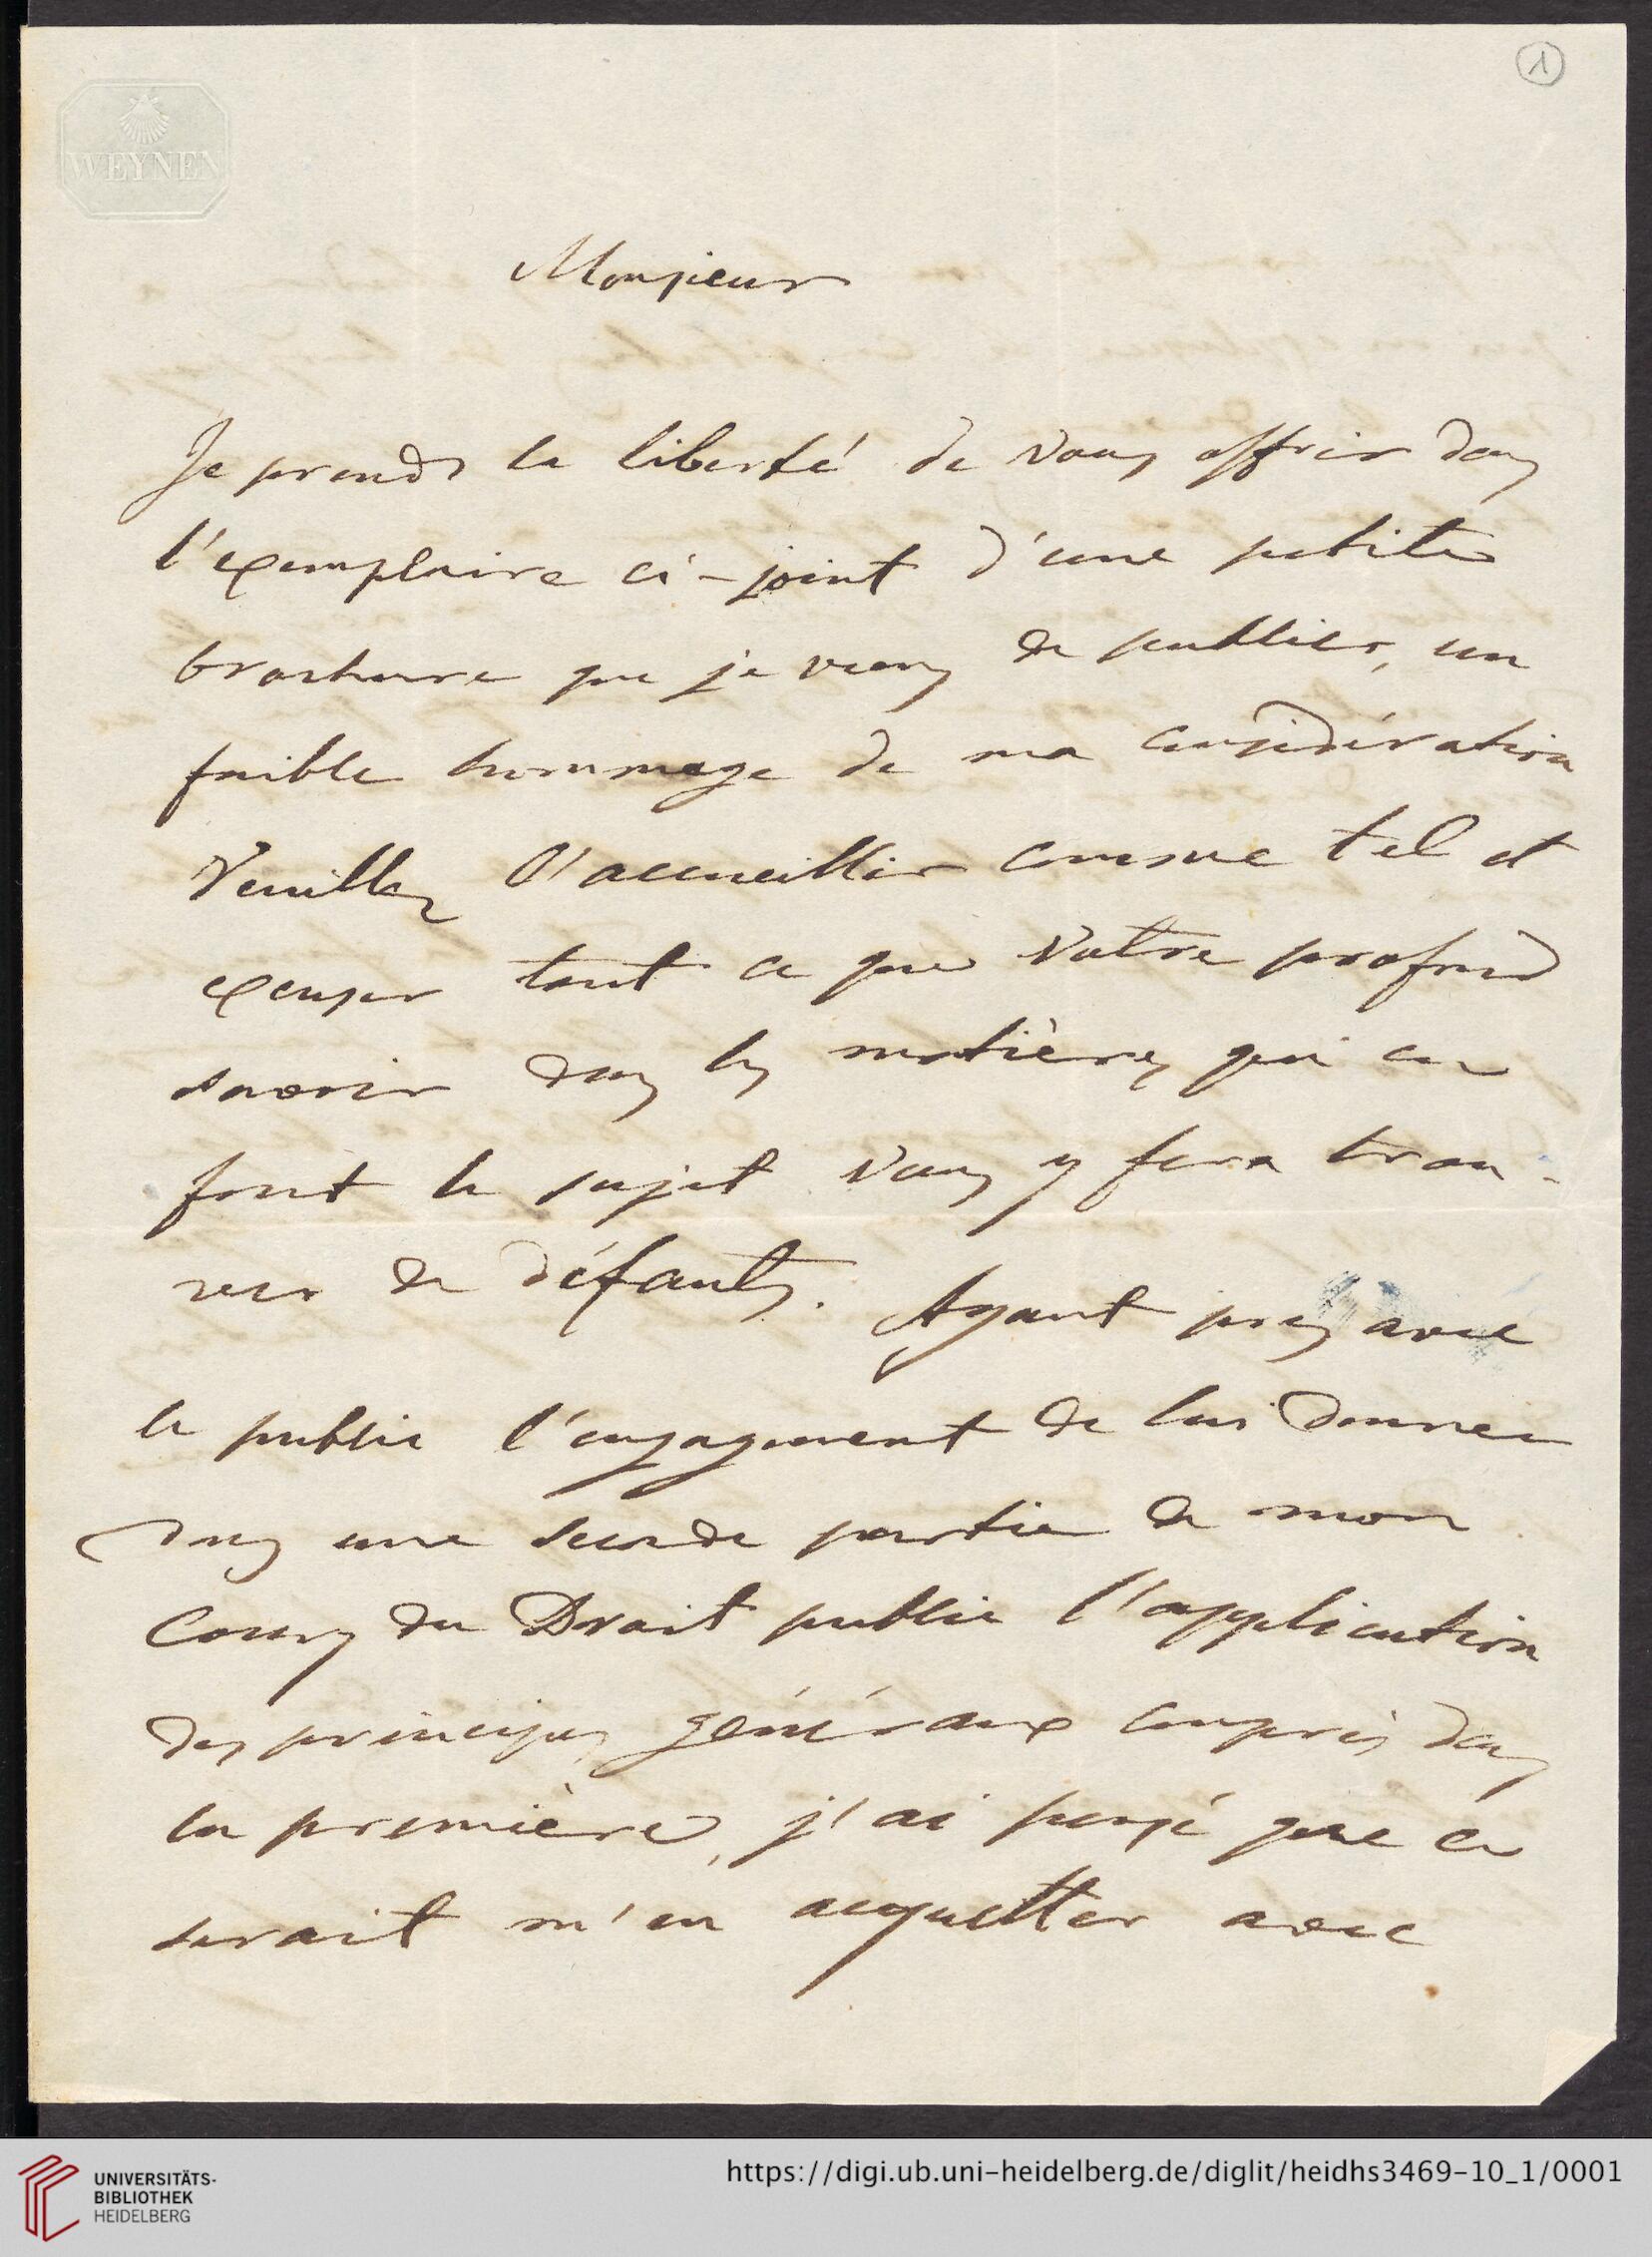 1
WEYNEN
Monsieur
Je prends la liberté de vous offrir dans
l'exemplaire ci-joint d'une petite
brochure que je viens de publier, un
faible hommage de ma considération
Veuillez l'accueillir comme tel et
excuser tout ce que Votre profond
savoir dans les matières qui en
font le sujet vous y fera trou-
ver de défauts. Ayant pris avec
le public l'engagement de lui donner
dans une seconde partie de mon
Cours du Droit public l'application
des principes généraux compris dans
la première, j'ai pensé que ce
serait m'en acquitter avec
UNIVERSITÄTS-
BIBLIOTHEK
HEIDELBERG
https://digi.ub.uni-heidelberg.de/diglit/heidhs3469-10_1/0001